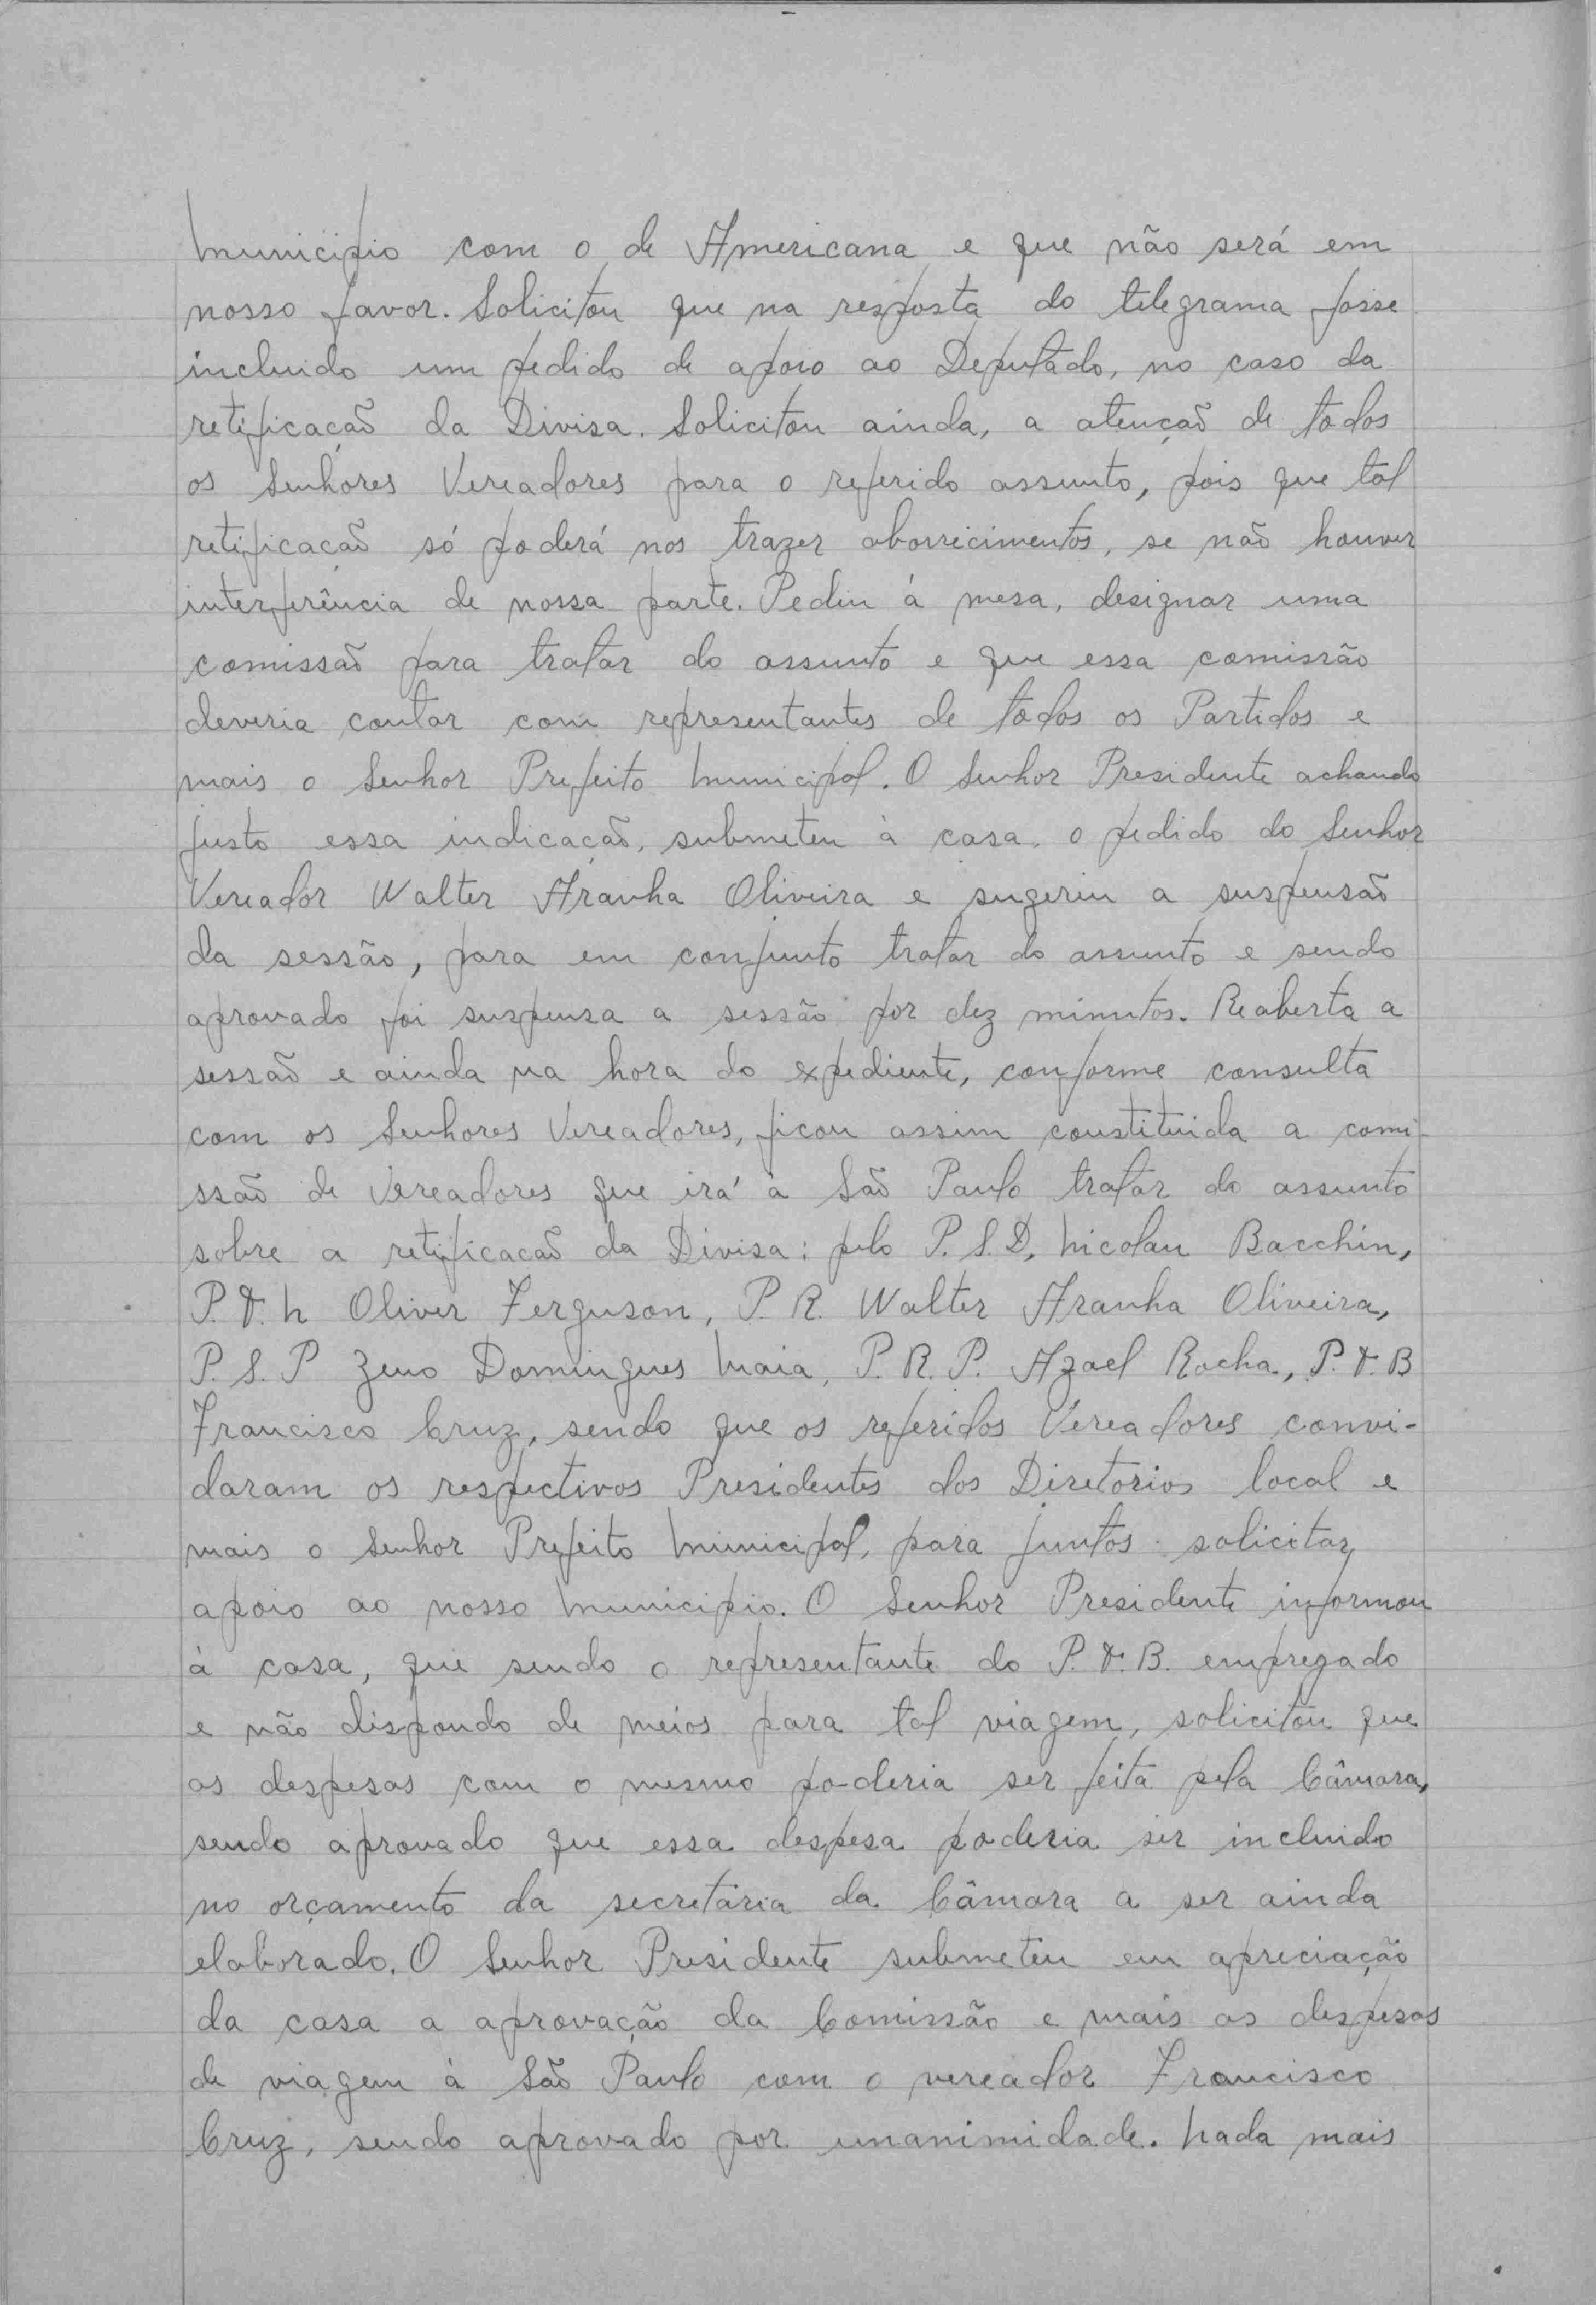 Municipio com o de Americana e que não será em
nosso favor. Solicitou que na resposta do telegrama fosse
incluido um pedido de apoio ao Deputado, no caso da
retificação da Divisa. Solicitou ainda, a atenção de todos
os Senhores Vereadores para o referido assunto, pois que tal
retificação só poderá nos trazer aborrecimentos, se não houver
interferência de nossa parte. Pediu á mesa, designar uma
comissão para tratar do assunto e que essa comissão
deveria contar com representantes de todos os Partidos e
mais o Senhor Prefeito Municipal. O Senhor Presidente achando
justo essa indicação, submeteu à casa, o pedido do Senhor
Vereador Walter Aranha Oliveira e sugeriu a suspensão
da sessão, para em conjunto tratar do assunto e sendo
aprovado foi suspensa a sessão por dez minutos. Reaberta a
sessão e ainda na hora do expediente, conforme consulta
com os Senhores Vereadores, ficou assim constituida a comi-
ssão de Vereadores que irá à São Paulo tratar do assunto
sobre a retificacão da Divisa: pelo P.S.D, Nicolau Bacchin,
P.T.N Oliver Ferguson, P.R. Walter Aranha Oliveira,
P.S.P Zeno Domingues Maia, P.R.P. Azael Rocha, P.T.B
Francisco Cruz, sendo que os referidos Vereadores convi-
daram os respectivos Presidentes dos Diretórios local e
mais o Senhor Prefeito Municipal, para juntos solicitar
apoio ao nosso Municipio. O Senhor Presidente informou
à casa, que sendo o representante do P.T.B. empregado
e não dispondo de meios para tal viagem, solicitou que
as despesas com o mesmo poderia ser feita pela Câmara,
sendo aprovado que essa despesa poderia ser incluido
no orçamento da secretária da Câmara a ser ainda
elaborado. O Senhor Presidente submeteu em apreciação
da casa a aprovação da Comissão e mais as despesas
de viagem à São Paulo com o vereador Francisco
Cruz, sendo aprovado por unanimidade. Nada mais